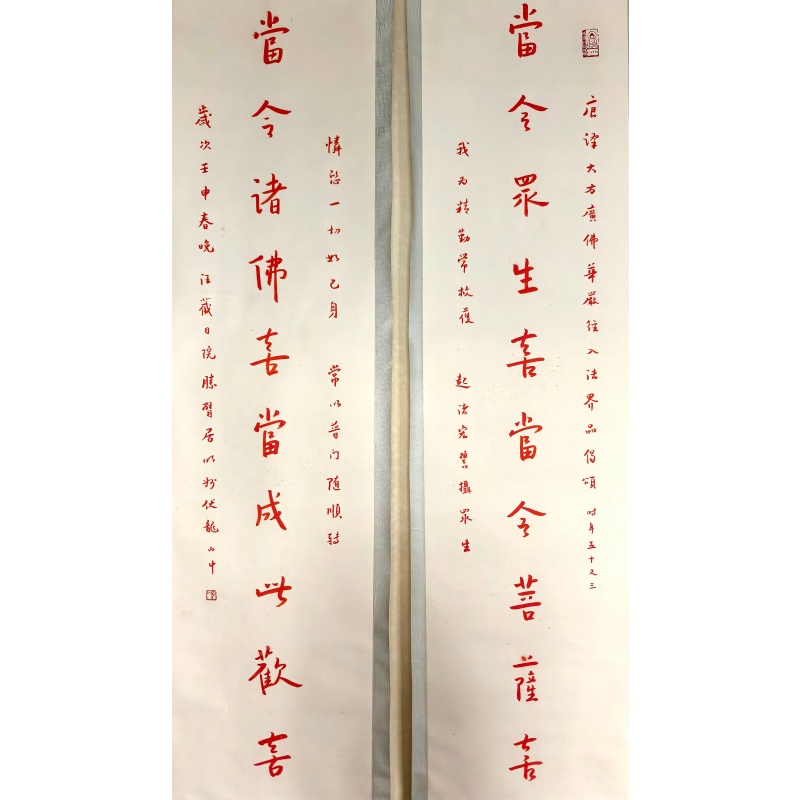 唐譯大方廣佛華嚴經入法界品偈頌 時年五十又三
當令眾生喜當令菩薩喜
我為精勤常救護 起諸宏誓攝眾生
憐愍一切如己身 常以普門隨順轉
當令諸佛喜當成此歡喜
歲次壬申春晚 日院勝臂居伏龍山中